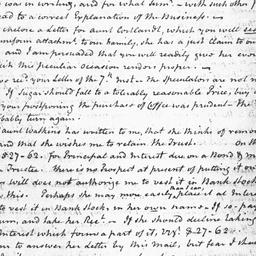 was in writing, and for what sum — with such other
ead to a correct Explanation of the Business. —
enclose a Letter for aunt Cortlandt, which you will see
attachm. to our family, she has a just Claim to
and I am persuaded that you will readily give her every
which this peculiar occasion renders proper. —
rec'd your Letter of the 7th inst. — The Speculators are not
If Sugar should fall to a tolerably reasonable Price, buy
your postponing the purchase of Coffee was prudent — The
bably turn again —
aunt Watkins has written to me, that she thinks of remov
and that she wishes me to retain the Trust. On th
827-62. for Principal and Interest due on a Bond & M
Trustee. There is no Prospect at present of putting it out
Will does not authorise me to vest it in Bank Stock
this. Perhaps she may more easily than I can, place it at Inter
to vest it in Bank Stock, in her own name — If so — pay
sum, and take her Rect. — If she should decline taking
Interest which forms a part of it, vizt. $27-62
to answer her Letter by this Mail, but fear I shou